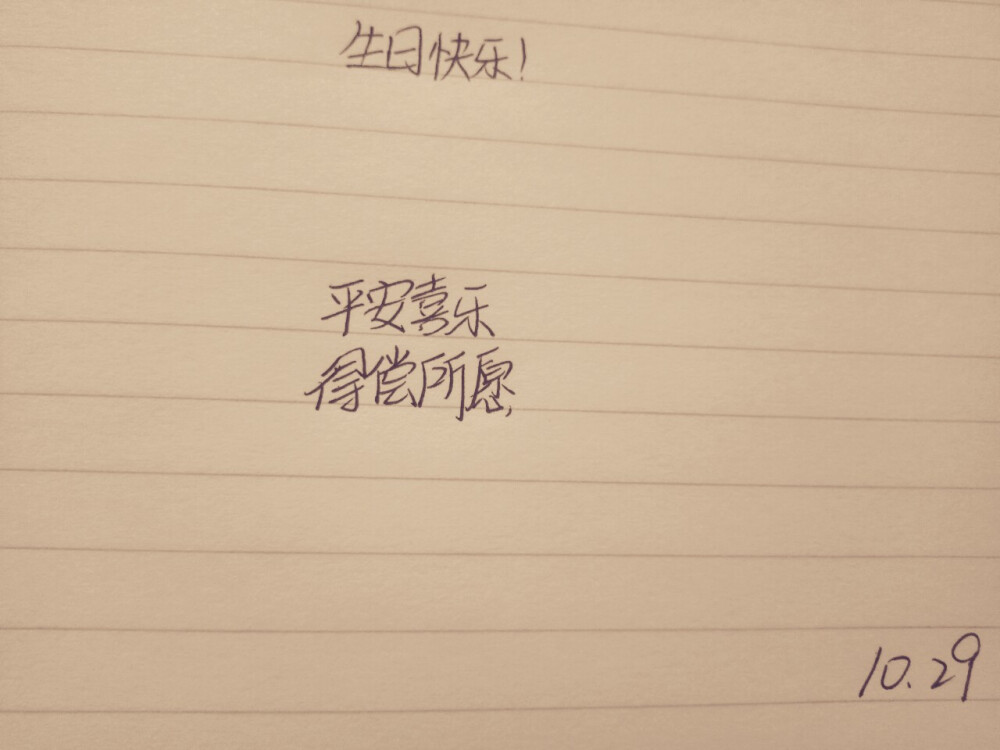 生日快乐!
平安喜乐
得偿所愿
10.29